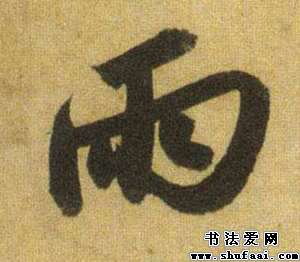 雨
书法爱网
www.shufaai.com